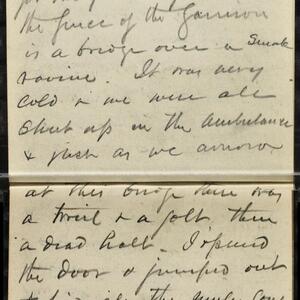 the fence of the Garrison
is a bridge over a Small
ravine. It was very
cold & we were all
shut up in the Ambulance
& just as we
at this bridge there was
a twist & a jolt then
a dead halt. I opened
the door & jumped out
the mules